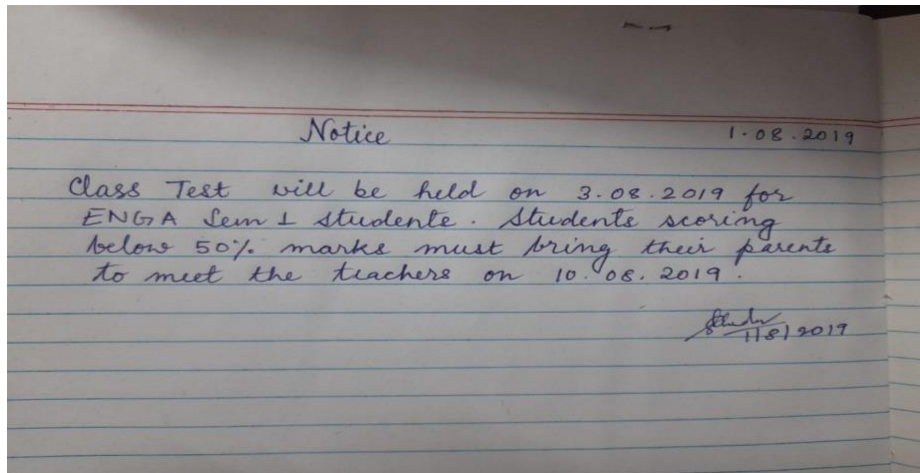 Notice
1.08.2019
Class Test will be held on 3.08.2019 for
ENGA Sem 1 students. Students scoring
below 50% marks must bring their parents
to meet the teachers on 10.08.2019.
1/8/2019